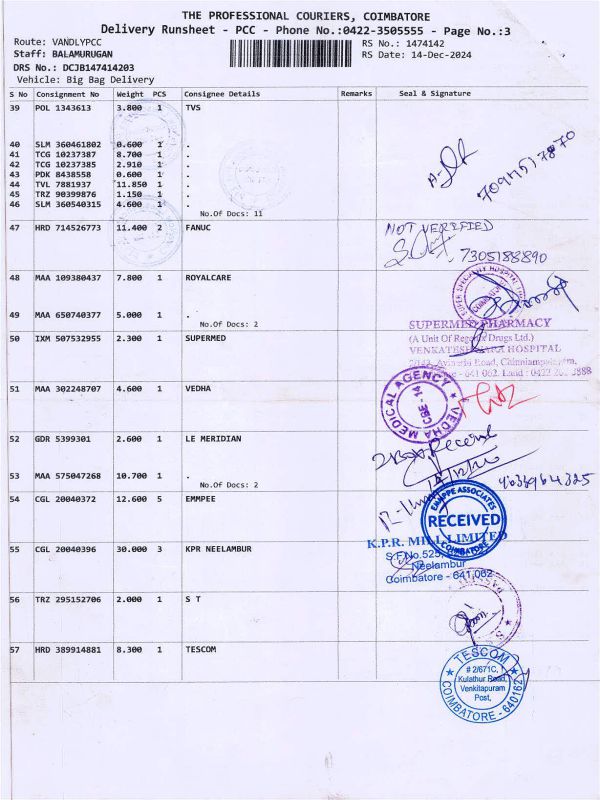 THE PROFESSIONAL COURIERS, COIMBATORE
Delivery Runsheet - PCC - Phone No.:0422-3505555 - Page No.:3
Route: VANDLYPCC
RS No.: 1474142
Staff: BALAMURUGAN
RS Date: 14-Dec-2024
DRS No.: DCJB147414203
Vehicle: Big Bag Delivery
S No Consignment No Weight PCS Consignee Details Remarks Seal & Signature
39 POL 1343613 3.800 1 TVS
40 SLM 360461802 0.600 1 .
41 TCG 10237387 8.700 1 .
42 TCG 10237385 2.910 1 .
43 PDK 8438558 0.600 1 .
44 TVL 7881937 11.850 1 .
45 TRZ 90399876 1.150 1 .
46 SLM 360540315 4.600 1 .
No.Of Docs: 11
47 HRD 714526773 11.400 2 FANUC
NOT VERIFIED
7305188890
48 MAA 109380437 7.800 1 ROYALCARE
49 MAA 650740377 5.000 1 .
No.Of Docs: 2
50 IXM 507532955 2.300 1 SUPERMED
SUPERMED PHARMACY
(A Unit Of Drugs Ltd.)
HOSPITAL
51 MAA 302248707 4.600 1 VEDHA
VEDHA MEDICAL AGENCY
CBE - 14
52 GDR 5399301 2.600 1 LE MERIDIAN
53 MAA 575047268 10.700 1 .
No.Of Docs: 2
54 CGL 20040372 12.600 5 EMMPEE
EMMPEE ASSOCIATES
RECEIVED
COIMBATORE
55 CGL 20040396 30.000 3 KPR NEELAMBUR
K.P.R. MILL LIMITED
S.F.No.525,
Neelambur
Coimbatore - 641 062
56 TRZ 295152706 2.000 1 S T
57 HRD 389914881 8.300 1 TESCOM
TESCOM
# 2/671C,
Kulathur Road,
Venkitapuram
Post,
COIMBATORE - 640162